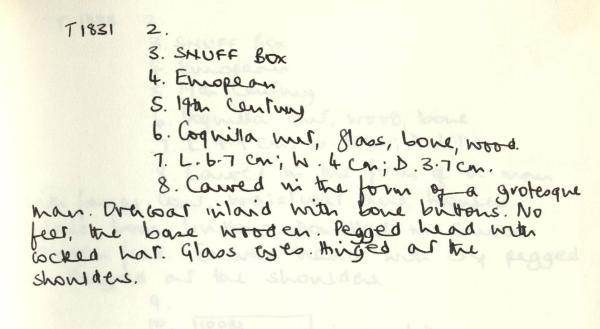 T1831 2.
3. SNUFF BOX
4. European
5. 19th Century
6. Coquilla nut, glass, bone, wood.
7. L. 6.7 cm; W. 4 cm; D. 3.7 cm.
8. Carved in the form of a grotesque
man. Overcoat inlaid with bone buttons. No
feet, the base wooden. Pegged head with
cocked hat. Glass eyes. Hinged at the
shoulders.